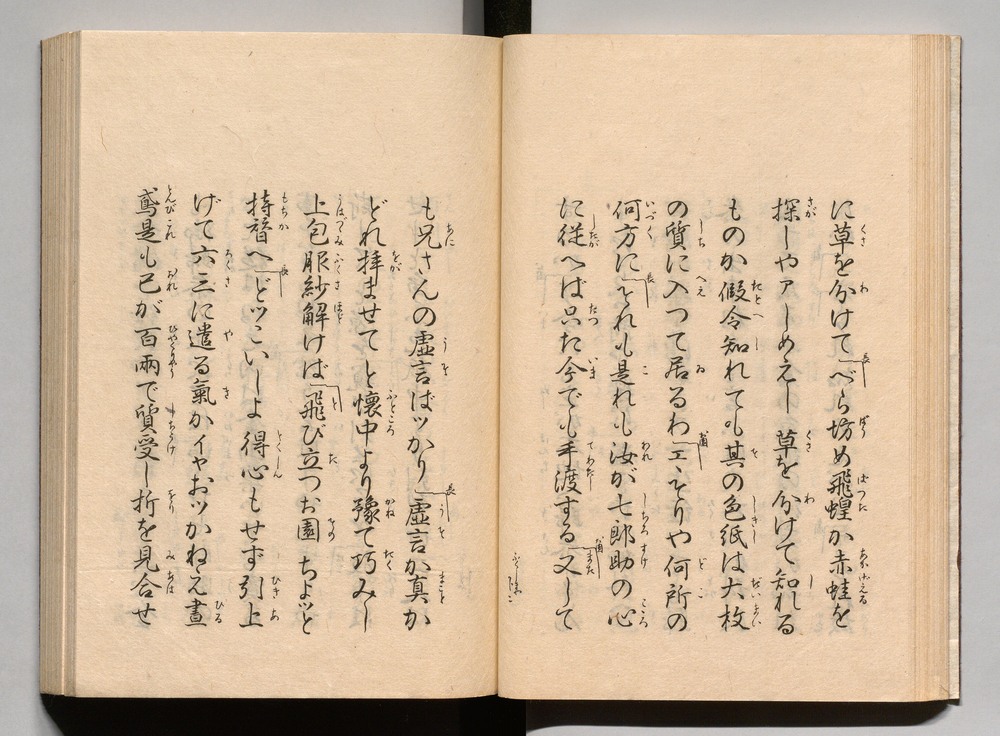 に草を分けて「べら坊め飛蝗か赤蛙を
探しやァしめえし 草を分けて知れる
ものか假令知れても其の色紙は大枚
の質に入つて居るわ「エヽそりや何所の
何方に「それも是れも汝が七郎助の心
に従へば只た今でも手渡する「又して
も兄さんの虚言ばツかり「虚言か真か
どれ拝ませてと懐中より豫て巧みし
上包服紗解けば「飛び立つお園 ちよツと
持替へ「どツこいしよ 得心もせず引上
げて六三に遣る氣かイヤおツかねえ晝
鳶是も己が百兩で質受し折を見合せ